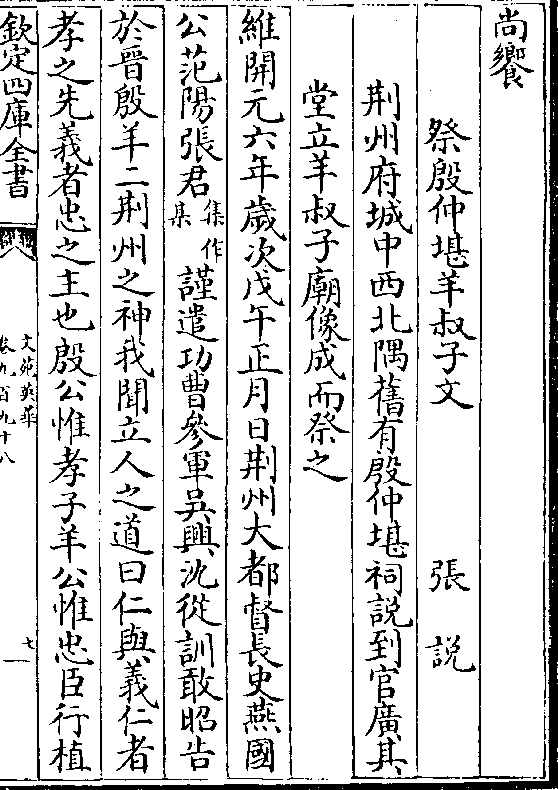 尚饗
祭殷仲堪羊叔子文　張說
荆州府城中西北隅舊有殷仲堪祠說到官廣其
堂立羊叔子廟像成而祭之
維開元六年歲次戊午正月日荆州大都督長史燕國
公范陽張君集作某謹遣功曹參軍吳興沈從訓敢昭告
於晉殷羊二荆州之神我聞立人之道曰仁與義仁者
孝之先義者忠之主也殷公惟孝子羊公惟忠臣行植
欽定四庫全書
文苑英華
卷九百九十八
七